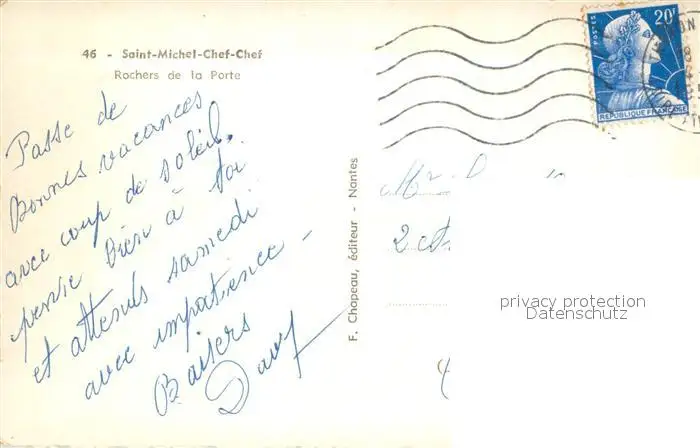 46 - Saint-Michel-Chef-Chef
Rochers de la Porte
Passe de
Bonnes vacances
avec coup de soleil.
pense bien à toi
et attends samedi
avec impatience -
Baisers
F. Chapeau, éditeur - Nantes
20F
POSTES
REPUBLIQUE FRANÇAISE
Mr
2
privacy protection
Datenschutz